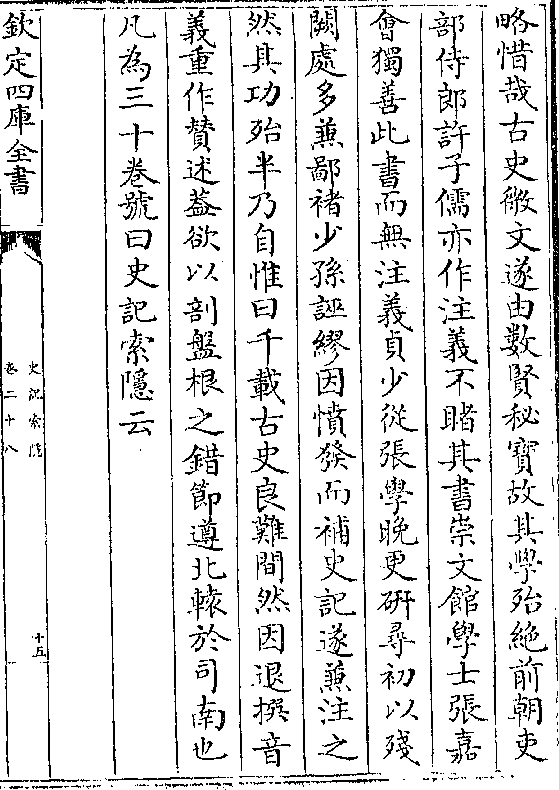 略惜哉古史微文遂由數賢秘寶故其學殆絶前朝吏
部侍郎許子儒亦作注義不睹其書崇文館學士張嘉
會獨善此書而無注義貞少從張學晚更研尋初以殘
闕處多兼鄙褚少孫誣繆因憤發而補史記遂兼注之
然其功殆半乃自惟曰千載古史良難間然因退撰音
義重作贊述葢欲以剖盤根之錯節遵北轅於司南也
凡為三十卷號曰史記索隱云
欽定四庫全書
史記索隱
卷二十八
十五